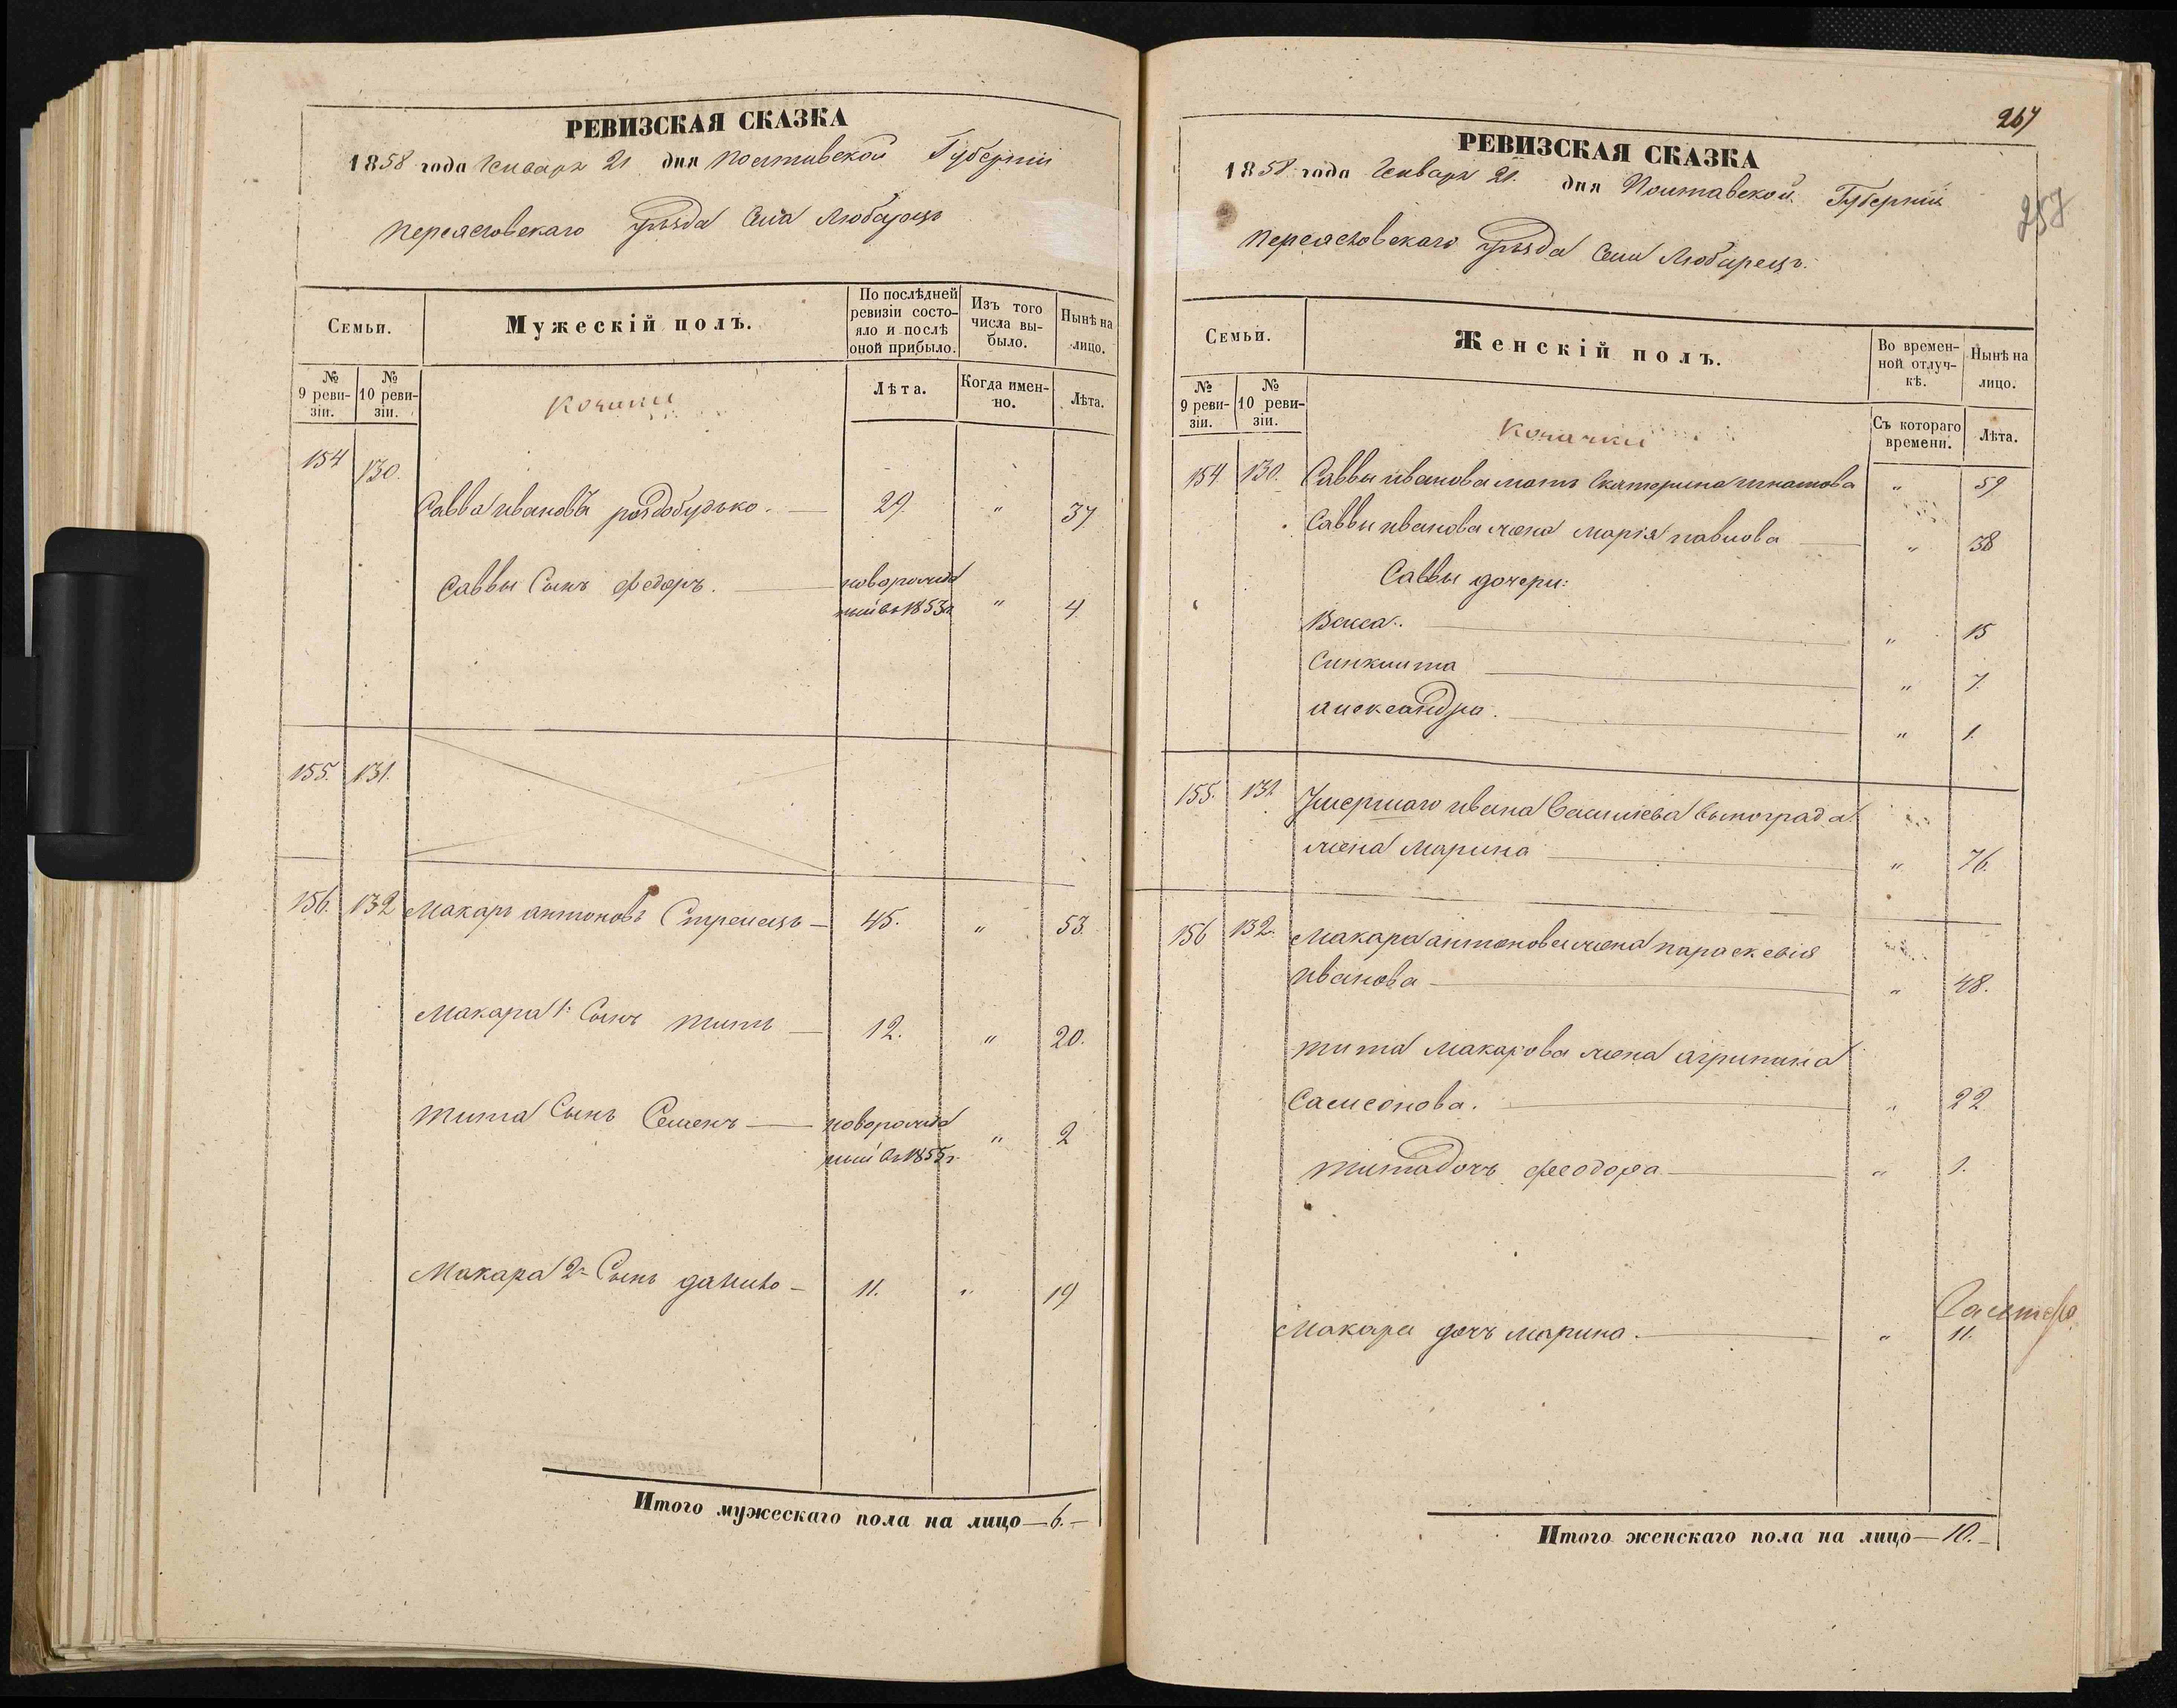 РЕВИЗСКАЯ СКАЗКА
1858 года Января 21 дня Полтавской Губерніи
Переясловскаго уѣзда Села Любарецъ
Семьи.
Мужескій полъ.
По послѣдней ревизіи состояло и послѣ оной прибыло.
Изъ того числа выбыло.
Нынѣ на лицо.
№ 9 ревизіи.
№ 10 ревизіи.
Козаки
Лѣта.
Когда именно.
Лѣта.
154 130.
Савва Ивановъ роздобудько. — 29. " 37
Саввы Сынъ Федоръ. — новорожден
ный въ 1853 г. " 4
155. 131.
156. 132 Макаръ антоновъ Стрелецъ — 45. " 53.
Макара 1й Сынъ титъ — 12. " 20.
тита Сынъ Семенъ — новорожден
ный въ 1855 г. " 2
Макара 2й Сынъ данило — 11. " 19
Итого мужескаго пола на лицо — 6. —
267
257
РЕВИЗСКАЯ СКАЗКА
1858 года Января 21. дня Полтавской Губерніи
Переясловскаго уѣзда Села Любарецъ.
Семьи.
Женскій полъ.
Во временной отлучкѣ.
Нынѣ на лицо.
№ 9 ревизіи.
№ 10 ревизіи.
Козачки
Съ котораго времени.
Лѣта.
154 130. Саввы иванова мать Екатерина игнатова " 59
Саввы иванова жена марія павлова — " 38
Саввы дочери:
Васса. — " 15
Синклита — " 7.
александра. — " 1.
155. 131. Умершаго ивана Василіева Винограда
жена Марина — " 76.
156 132. Макара антонова жена параскевія
иванова — " 48.
тита макарова жена агрипина
Самсонова. — " 22
тита дочь феодора — " 1.
Макара дочь марина. — " 11.
Итого женскаго пола на лицо — 10. —